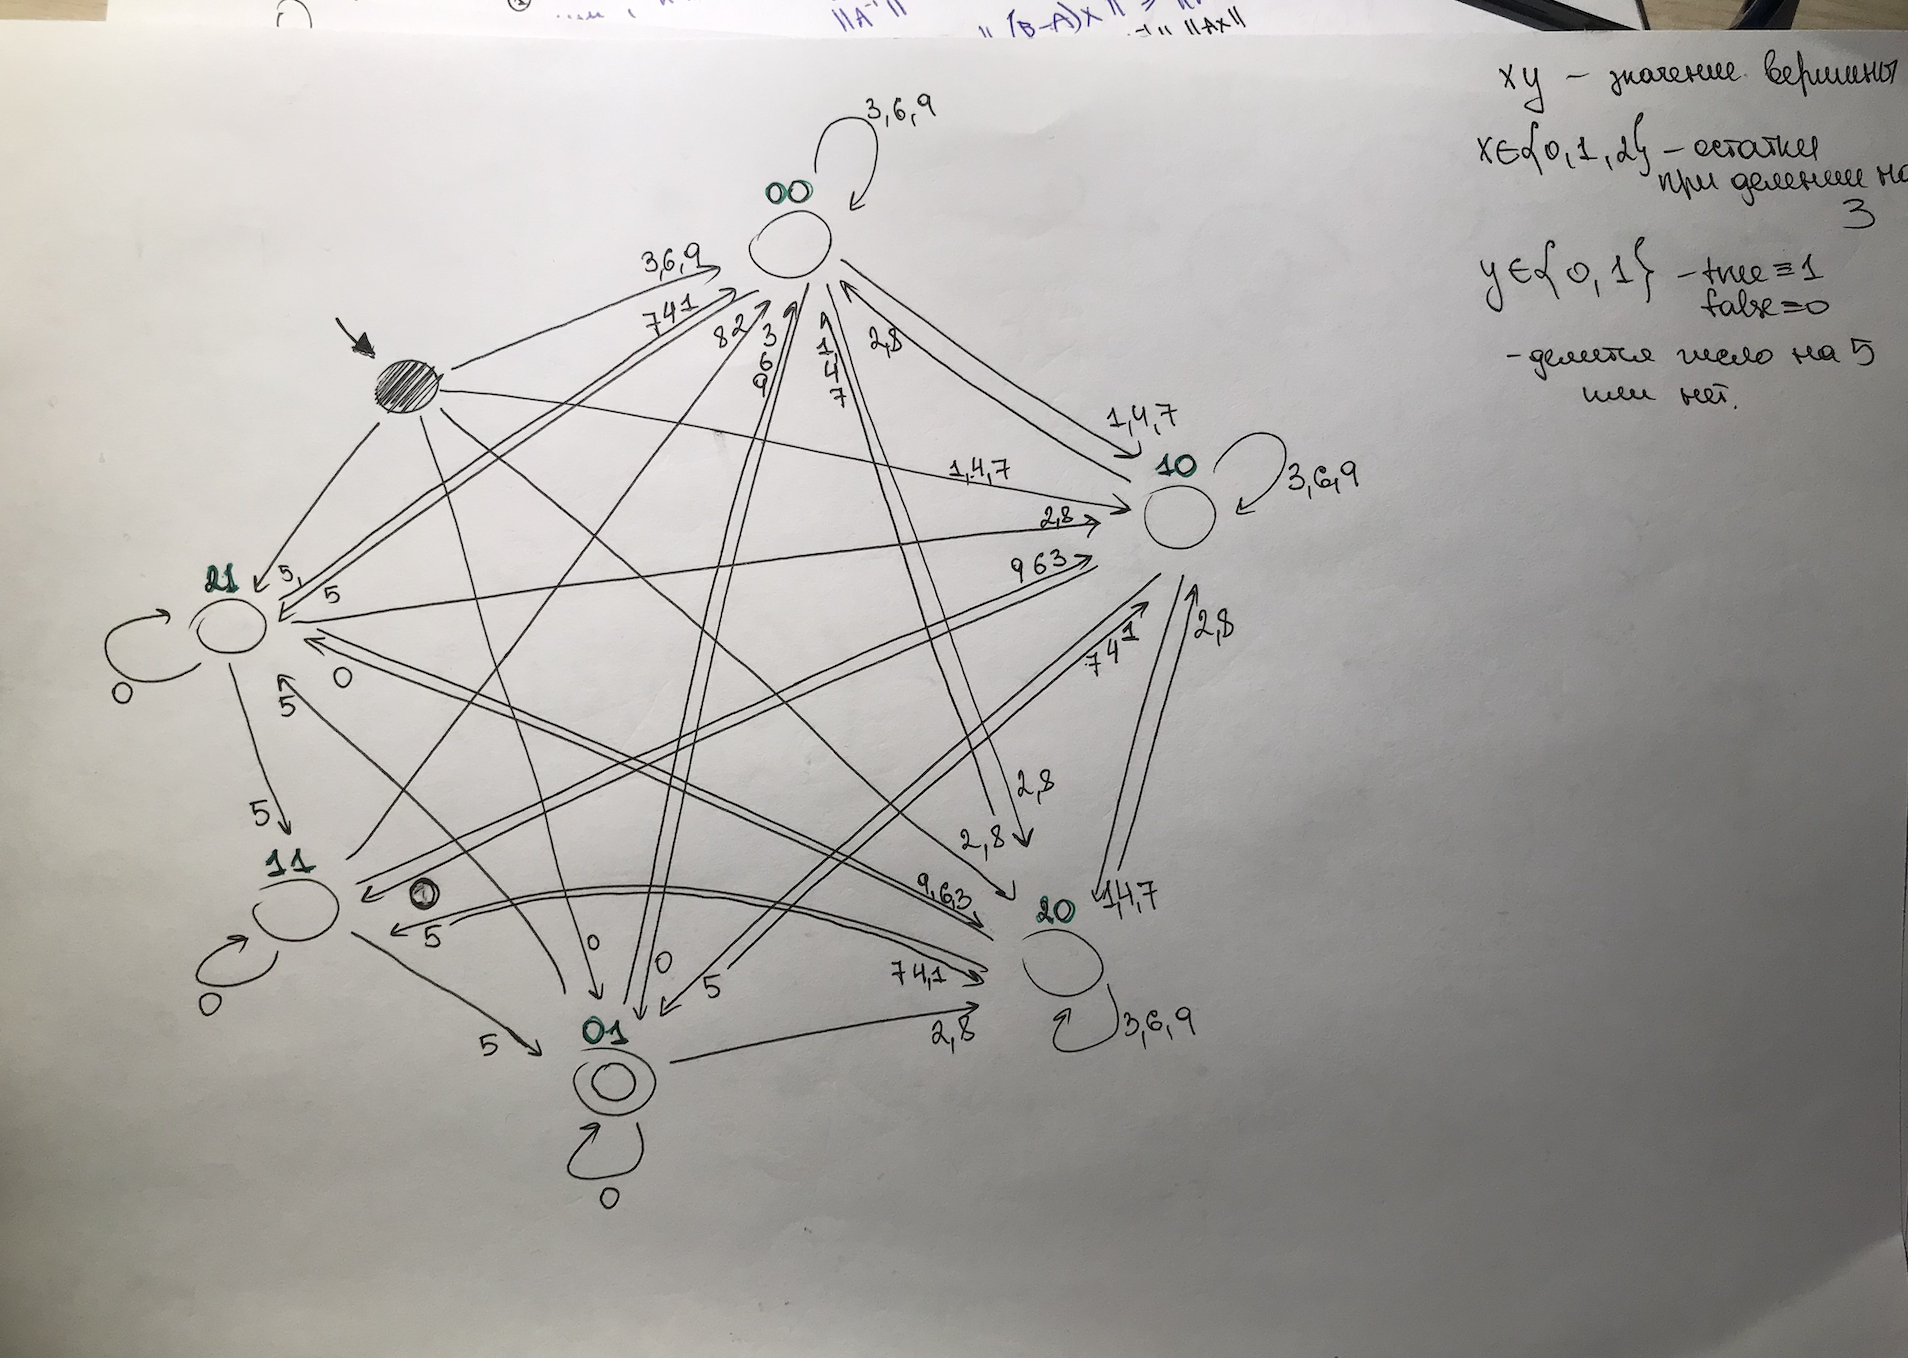 ||A⁻¹||
|| (B-A)x ||
|| Ax ||
xy - значение вершины
x∈{0,1,2} - остатки
при делении на
3
y∈{0,1} - true≡1
false=0
- делится число на 5
или нет.
3,6,9
00
3,6,9
7 4 1
8 2
3
6
9
1,
4
7
2,8
1,4,7
10
3,6,9
1,4,7
2,8
9 6 3
21
5,
5
0
0
5
7 4 1
2,8
5
2,8
2,8
11
0
5
9,6,3
20
1,4,7
0
0
0
5
7 4,1
5
01
2,8
3,6,9
0